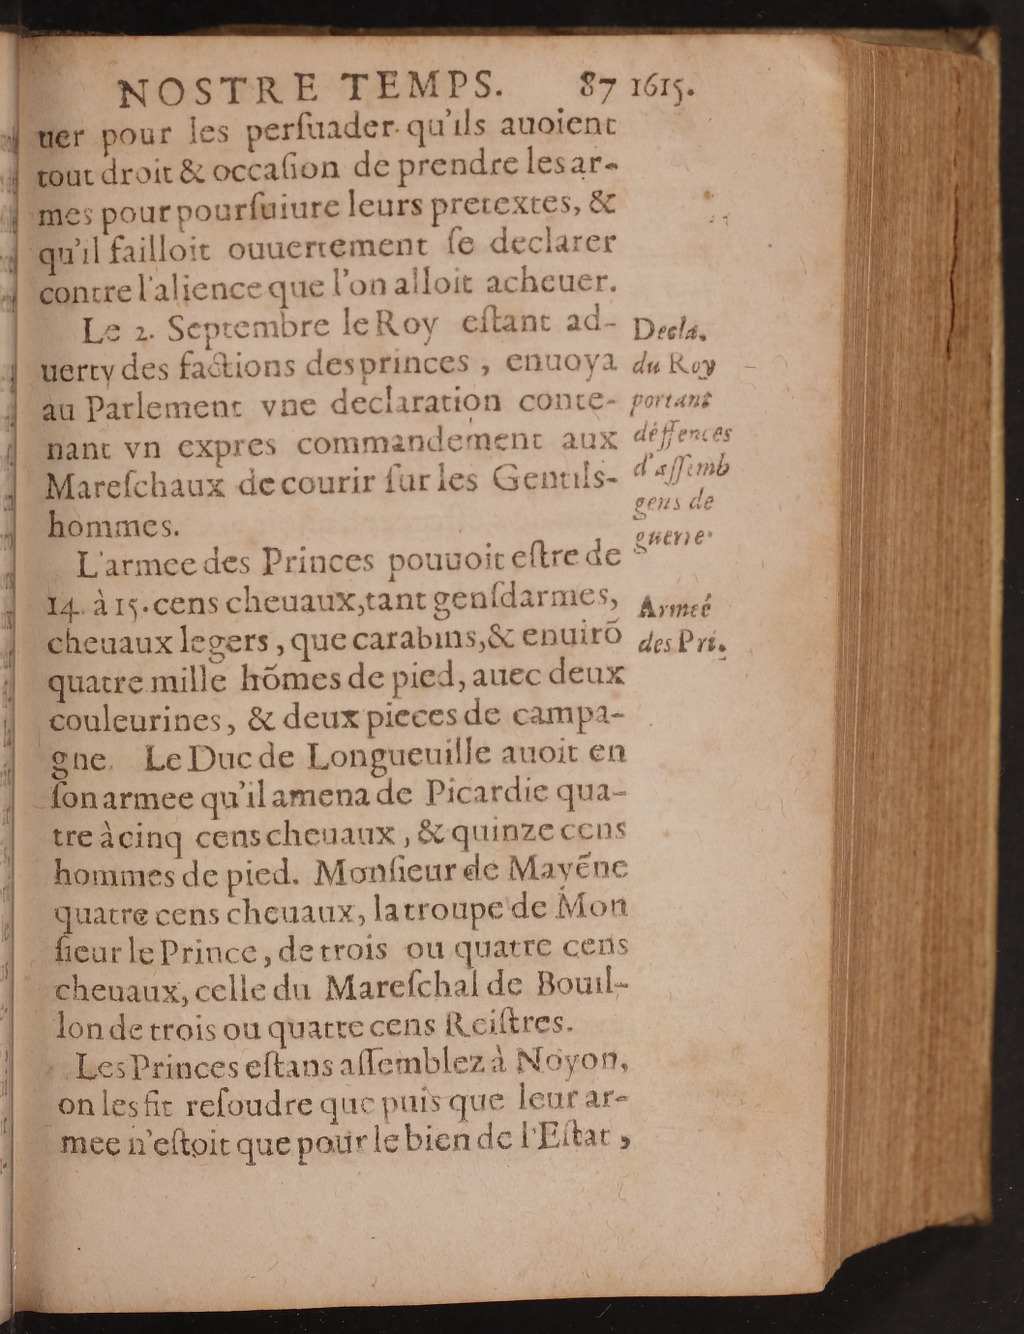 NOSTRE TEMPS. 87 1615.
uer pour les perſuader qu'ils auoient
tout droit & occaſion de prendre les ar-
mes pour pourſuiure leurs pretextes, &
qu'il failloit ouuertement ſe declarer
contre l'alience que l'on alloit acheuer.
Le 2. Septembre le Roy eſtant ad-
uerty des factions des princes, enuoya
au Parlement vne declaration conte-
nant vn expres commandement aux
Mareſchaux de courir ſur les Gentils-
hommes.
Decla.
du Roy
portant
déffences
d'aſſemb
gens de
guerre
L'armee des Princes pouuoit eſtre de
14. à 15. cens cheuaux, tant genſdarmes,
cheuaux legers, que carabins, & enuirõ
quatre mille hõmes de pied, auec deux
couleurines, & deux pieces de campa-
gne. Le Duc de Longueuille auoit en
ſon armee qu'il amena de Picardie qua-
tre à cinq cens cheuaux, & quinze cens
hommes de pied. Monſieur de Mayẽne
quatre cens cheuaux, la troupe de Mon
ſieur le Prince, de trois ou quatre cens
cheuaux, celle du Mareſchal de Bouil-
lon de trois ou quatre cens Reiſtres.
Armeé
des Pri.
Les Princes eſtans aſſemblez à Noyon,
on les fit reſoudre que puis que leur ar-
mee n'eſtoit que pour le bien de l'Eſtat,